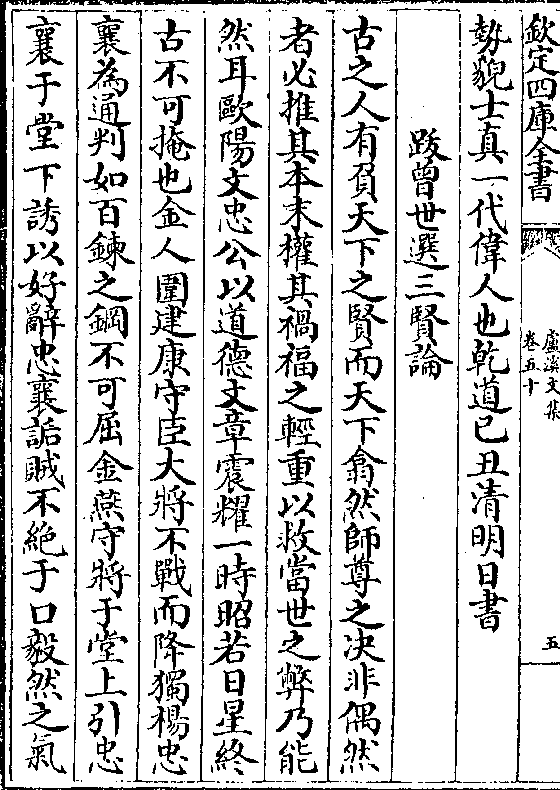 欽定四庫全書
盧溪文集
卷五十
五
勢貌士真一代偉人也乾道己丑清明日書
跋曾世選三賢論
古之人有負天下之賢而天下翕然師尊之决非偶然
者必推其本末權其禍福之輕重以救當世之弊乃能
然耳歐陽文忠公以道德文章震耀一時昭若日星終
古不可掩也金人圍建康守臣大將不戰而降獨楊忠
襄為通判如百鍊之鋼不可屈金燕守將于堂上引忠
襄于堂下誘以好辭忠襄詬賊不絶于口毅然之氣